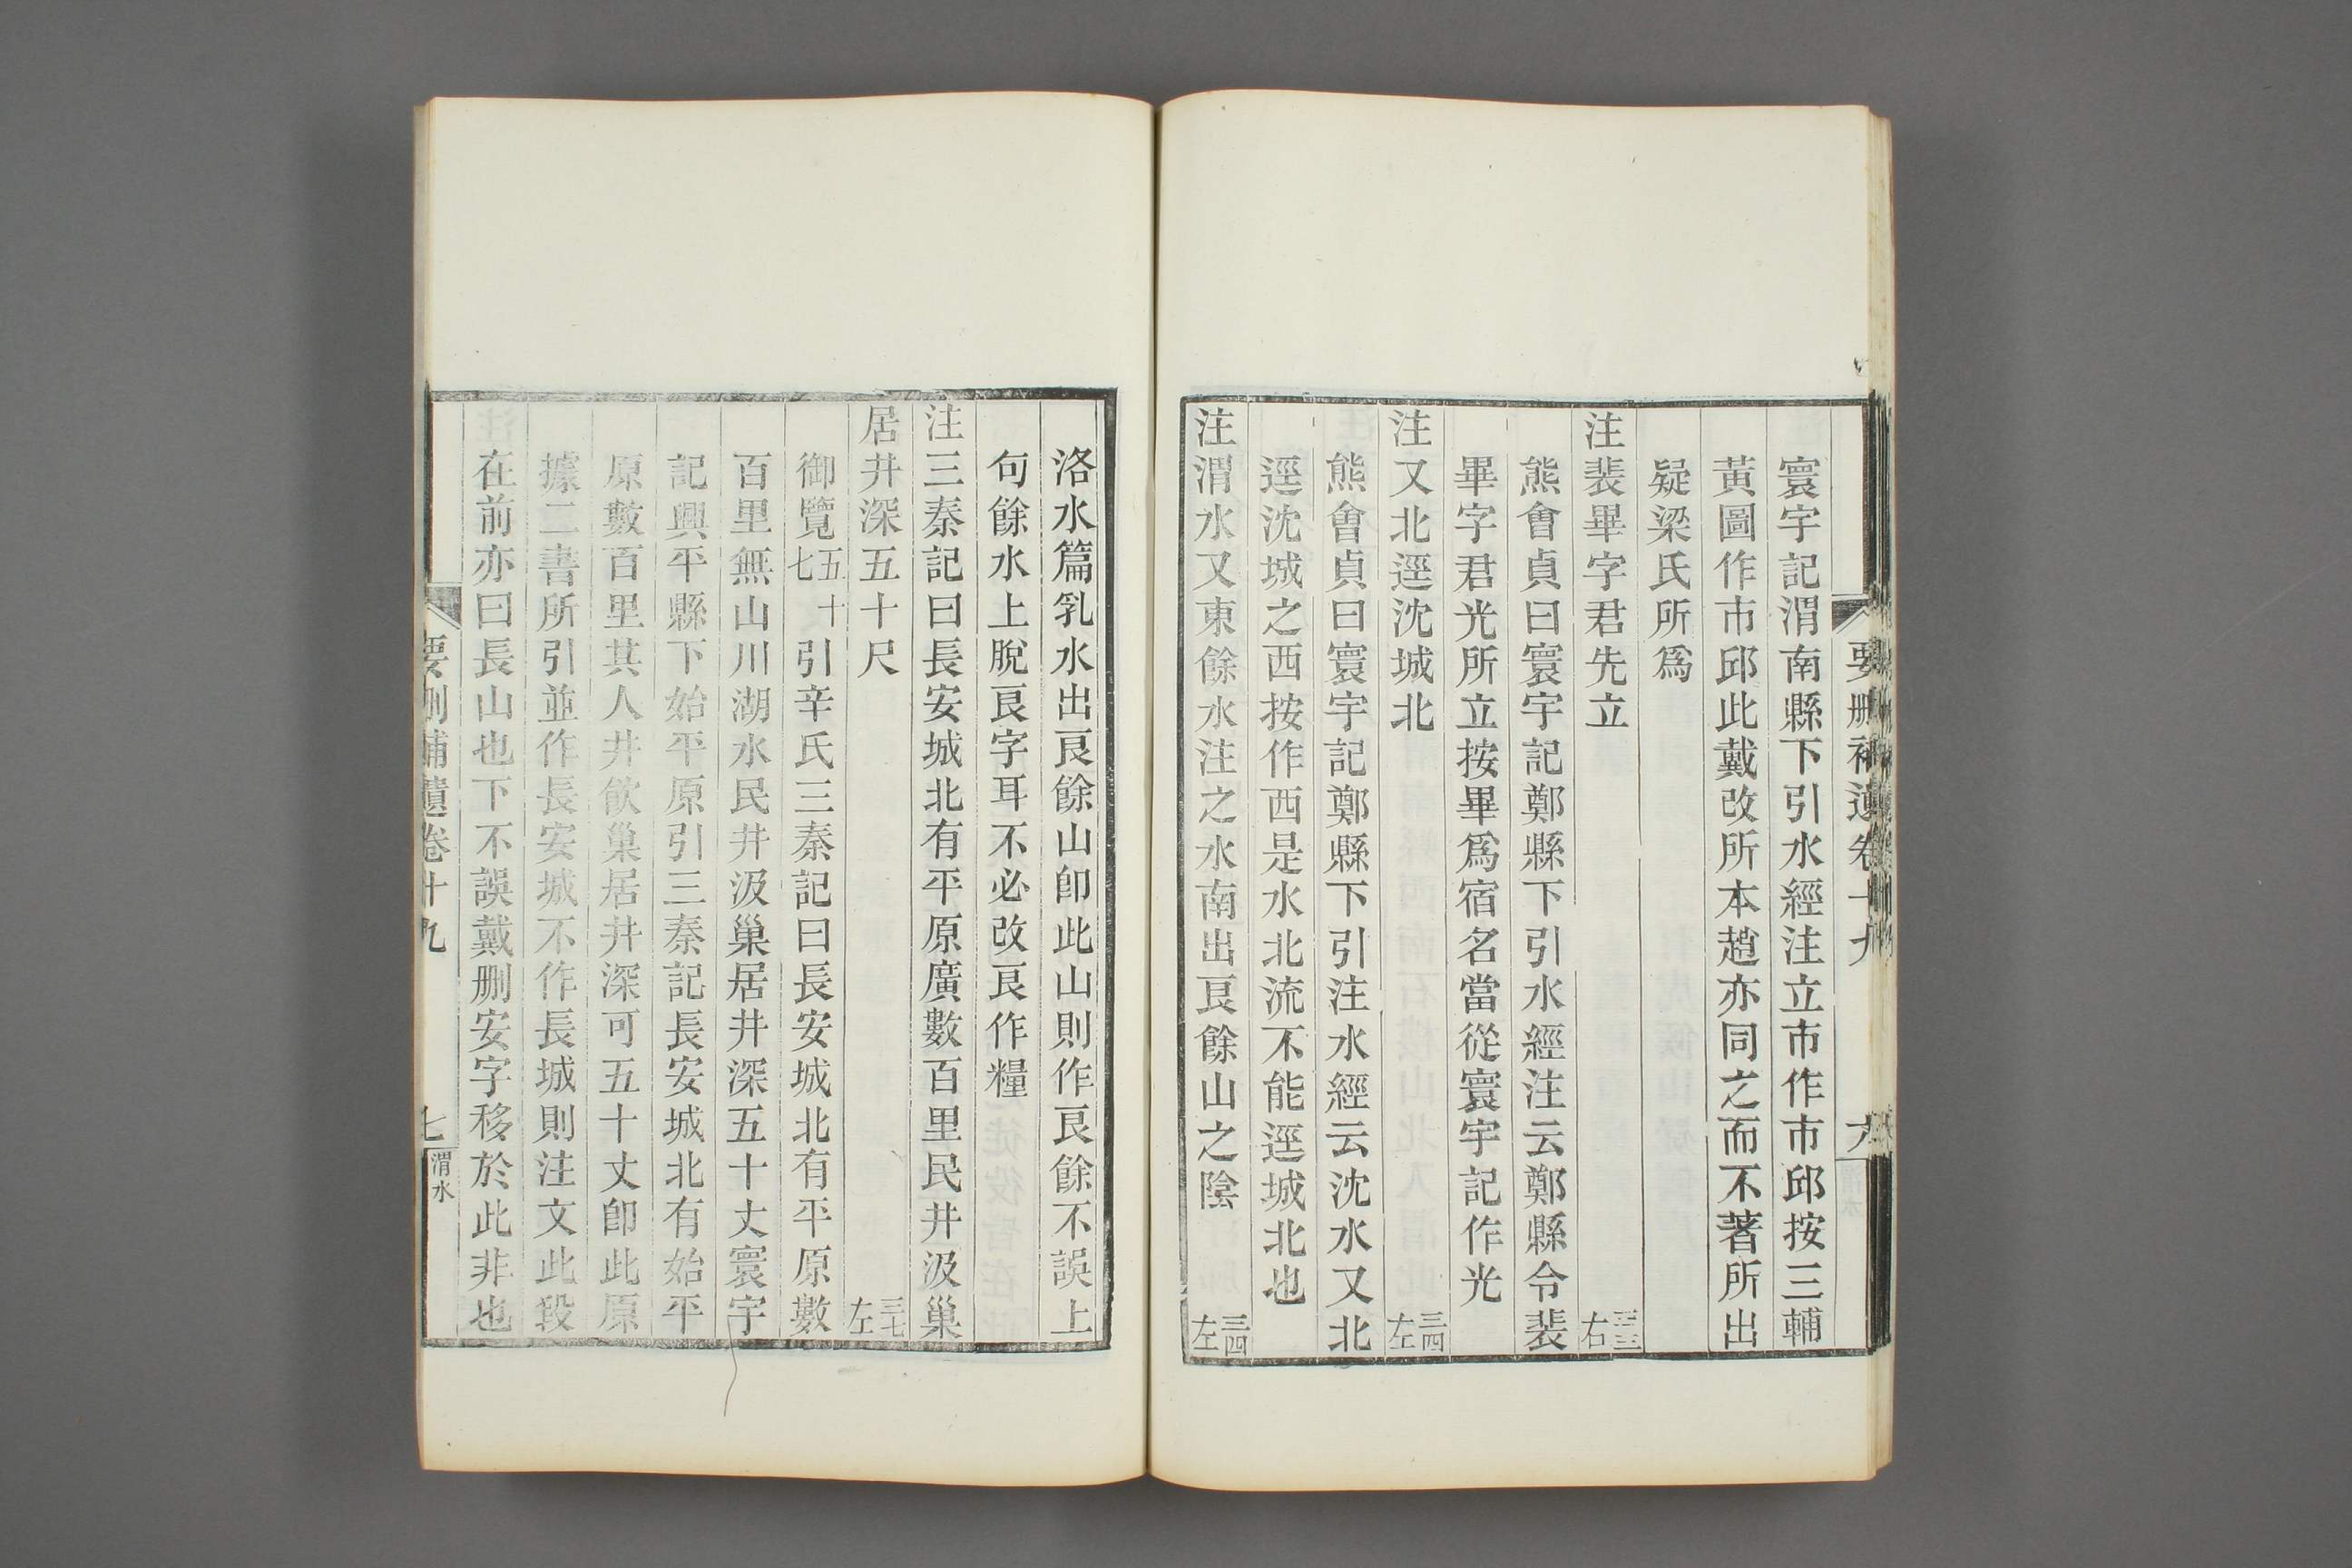 要刪補遺卷十九
六
寰宇記渭南縣下引水經注立市作市邱按三輔
黃圖作市邱此戴改所本趙亦同之而不著所出
疑梁氏所爲
注裴畢字君先立
三三右
熊會貞曰寰宇記鄭縣下引水經注云鄭縣令裴
畢字君光所立按畢爲宿名當從寰宇記作光
注又北逕沈城北
三四左
熊會貞曰寰宇記鄭縣下引注水經云沈水又北
逕沈城之西按作西是水北流不能逕城北也
注渭水又東餘水注之水南出艮餘山之陰
三四左
洛水篇乳水出艮餘山卽此山則作艮餘不誤上
句餘水上脫艮字耳不必改艮作糧
注三秦記曰長安城北有平原廣數百里民井汲巢
居井深五十尺
三七左
御覽五十七引辛氏三秦記曰長安城北有平原數
百里無山川湖水民井汲巢居井深五十丈寰宇
記興平縣下始平原引三秦記長安城北有始平
原數百里其人井飮巢居井深可五十丈卽此原
據二書所引並作長安城不作長城則注文此段
在前亦曰長山也下不誤戴刪安字移於此非也
要刪補遺卷十九
七
渭水